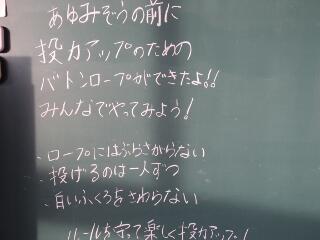 あゆみぞうの前に
投力アップのための
バトンロープができたよ!!
みんなでやってみよう!
・ロープにはぶらさがらない
・投げるのは一人ずつ
・白いふくろをさわらない
ルールを守って楽しく投力アップ!